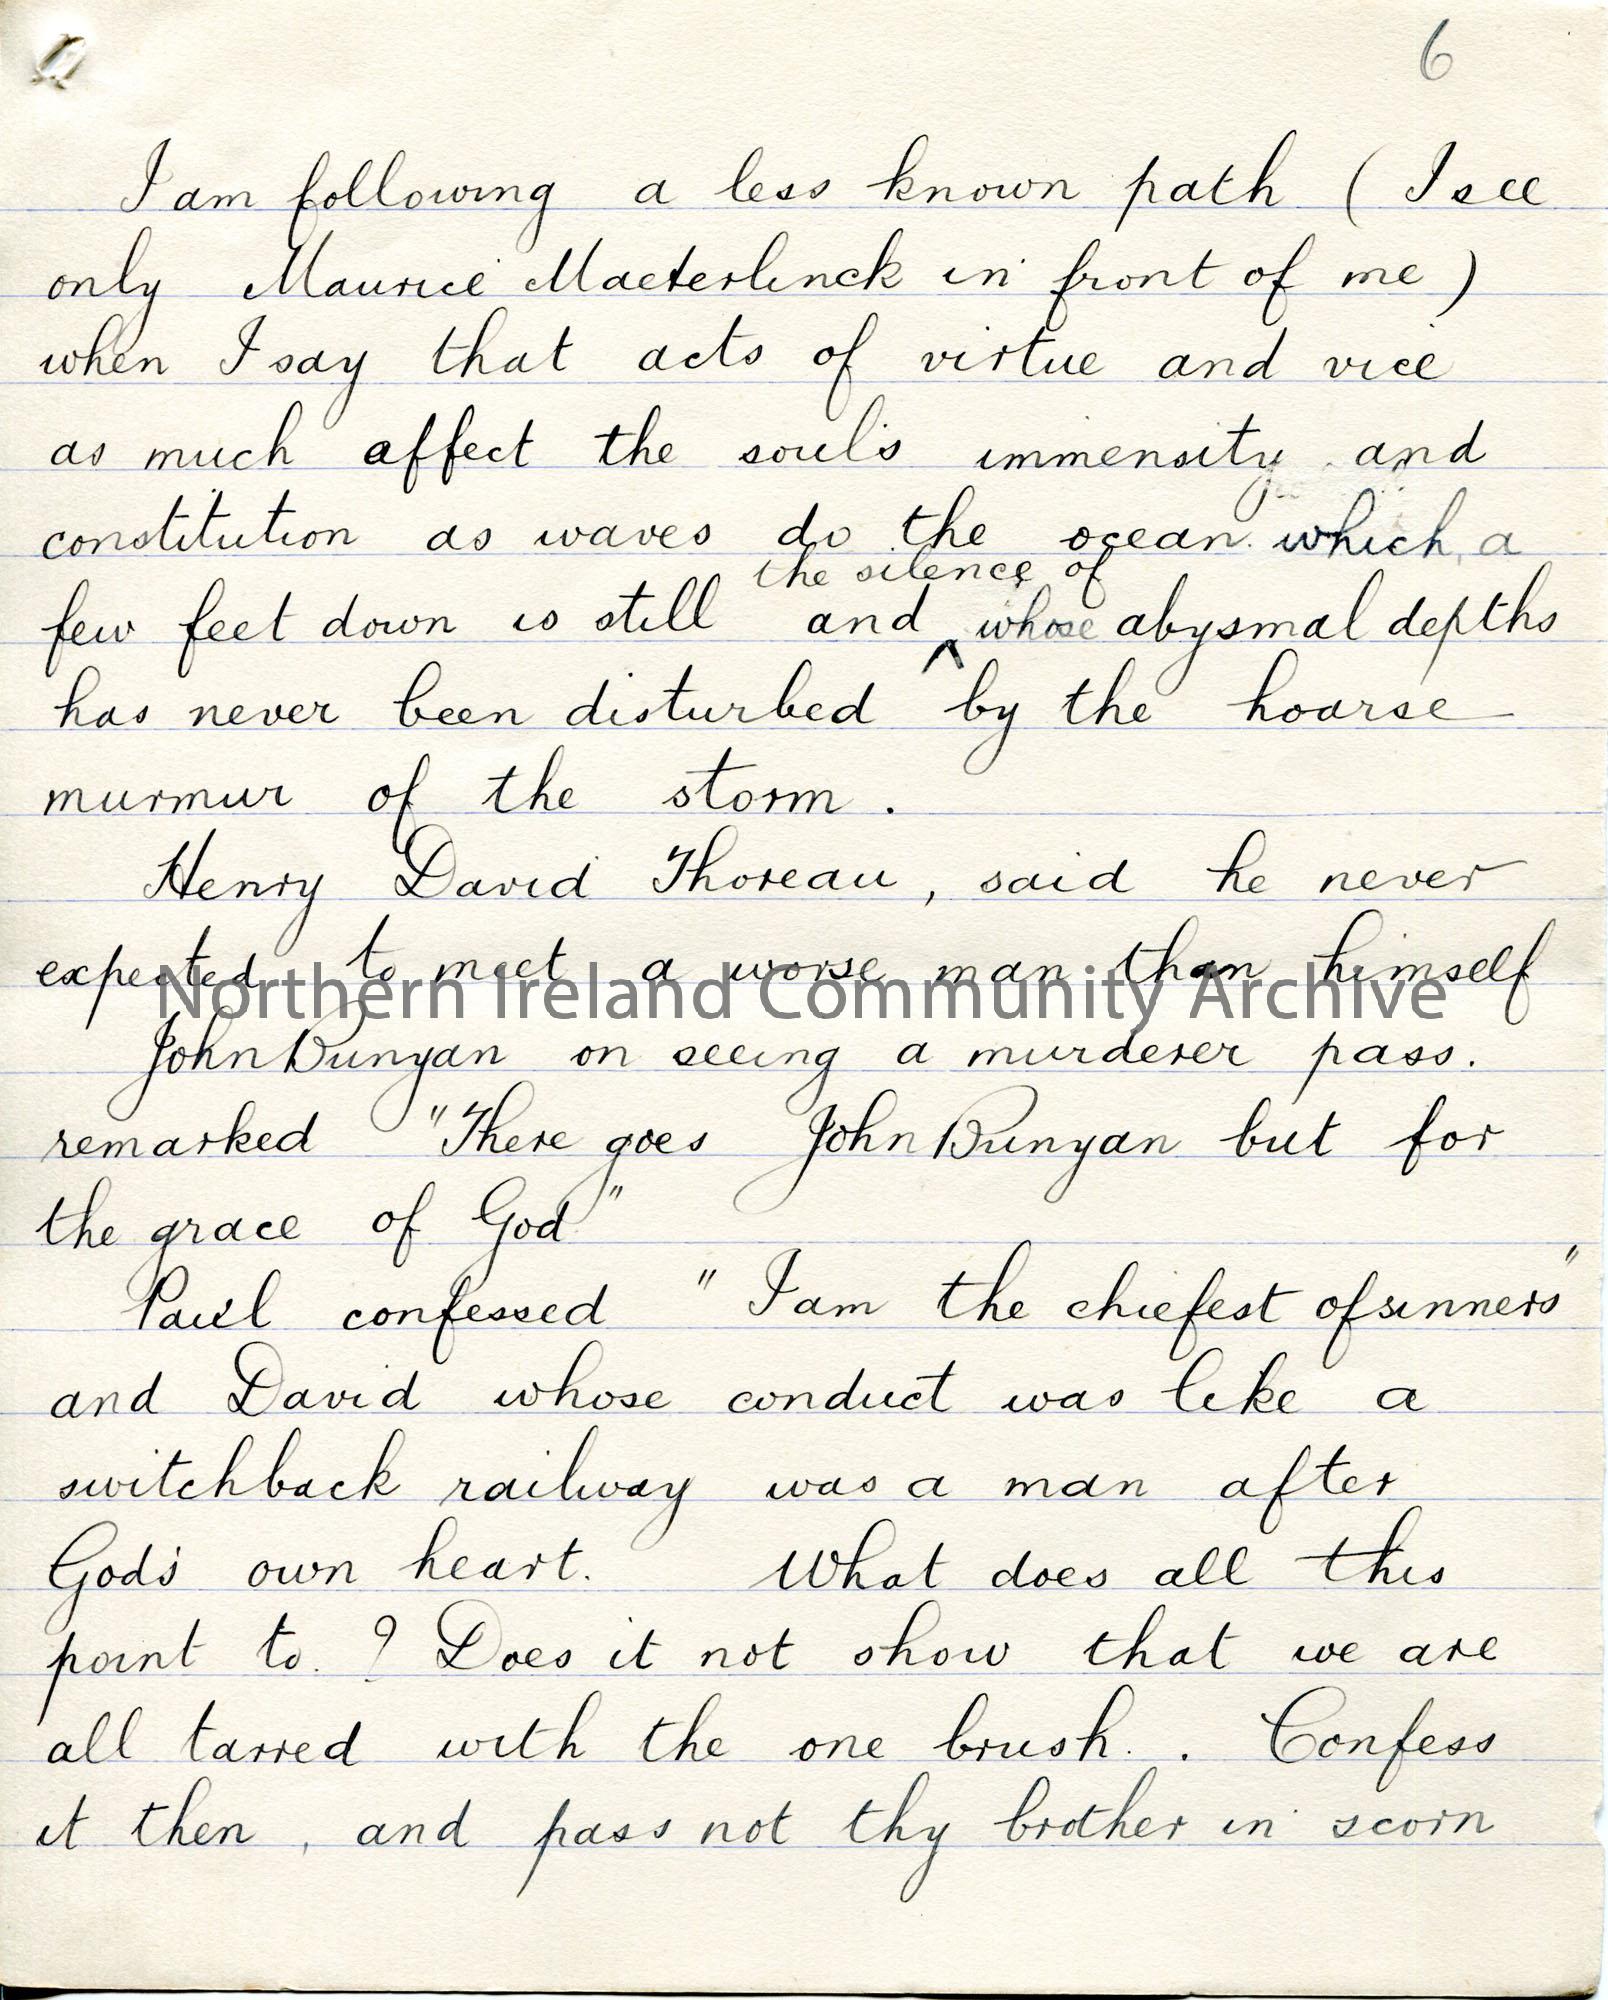 6
I am following a less known path ( I see
only Maurice Maeterlinck in front of me )
when I say that acts of virtue and vice
as much affect the soul's immensity and
constitution as waves do the ocean which a
the silence of
few feet down is still and ^ whose abysmal depths
has never been disturbed by the hoarse
murmur of the storm .
Henry David Thoreau , said he never
expected to meet a worse man than himself
Northern Ireland Community Archive
John Bunyan on seeing a murderer pass.
remarked "There goes John Bunyan but for
the grace of God"
Paul confessed " I am the chiefest of sinners"
and David whose conduct was like a
switchback railway was a man after
God's own heart. What does all this
point to. ? Does it not show that we are
all tarred with the one brush. . Confess
it then , and pass not thy brother in scorn